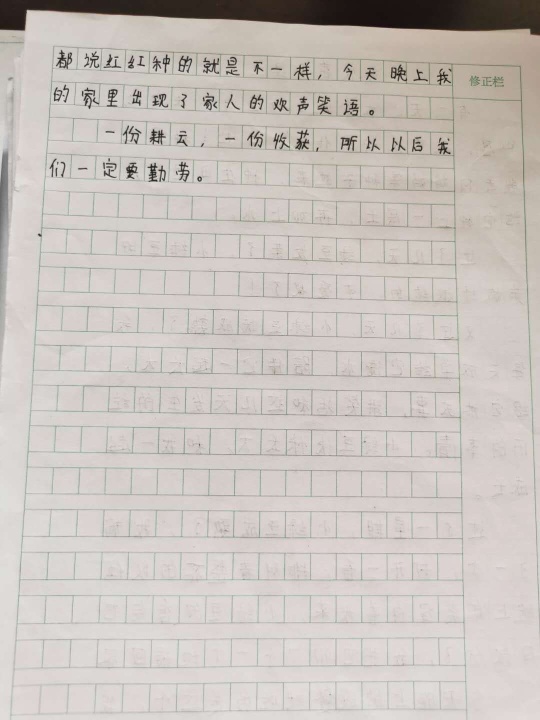 都说红红种的就是不一样，今天晚上我
修正栏
的家里出现了家人的欢声笑语。
一份耕云，一份收获，所以以后我
们一定要勤劳。